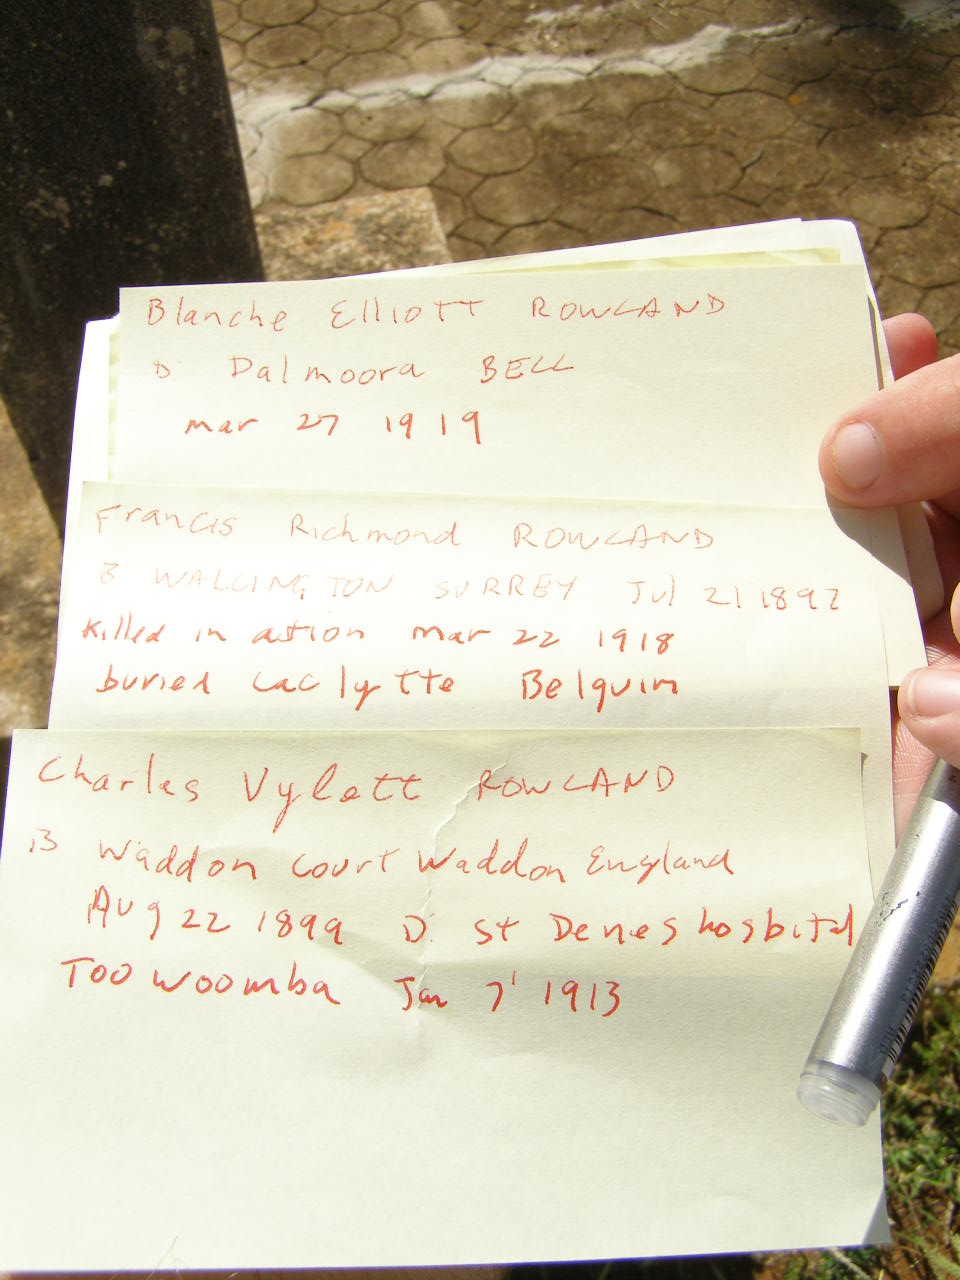 Blanche Elliott ROWLAND
D Dalmoora BELL
mar 27 1919
Francis Richmond ROWLAND
B WALLINGTON SURREY Jul 21 1892
Killed in action mar 22 1918
buried Laclytte Belguim
Charles Vylett ROWLAND
B Waddon Court Waddon England
Aug 22 1899 D. St Denes hosbital
TOOWOOMBA Jan 7' 1913
RED